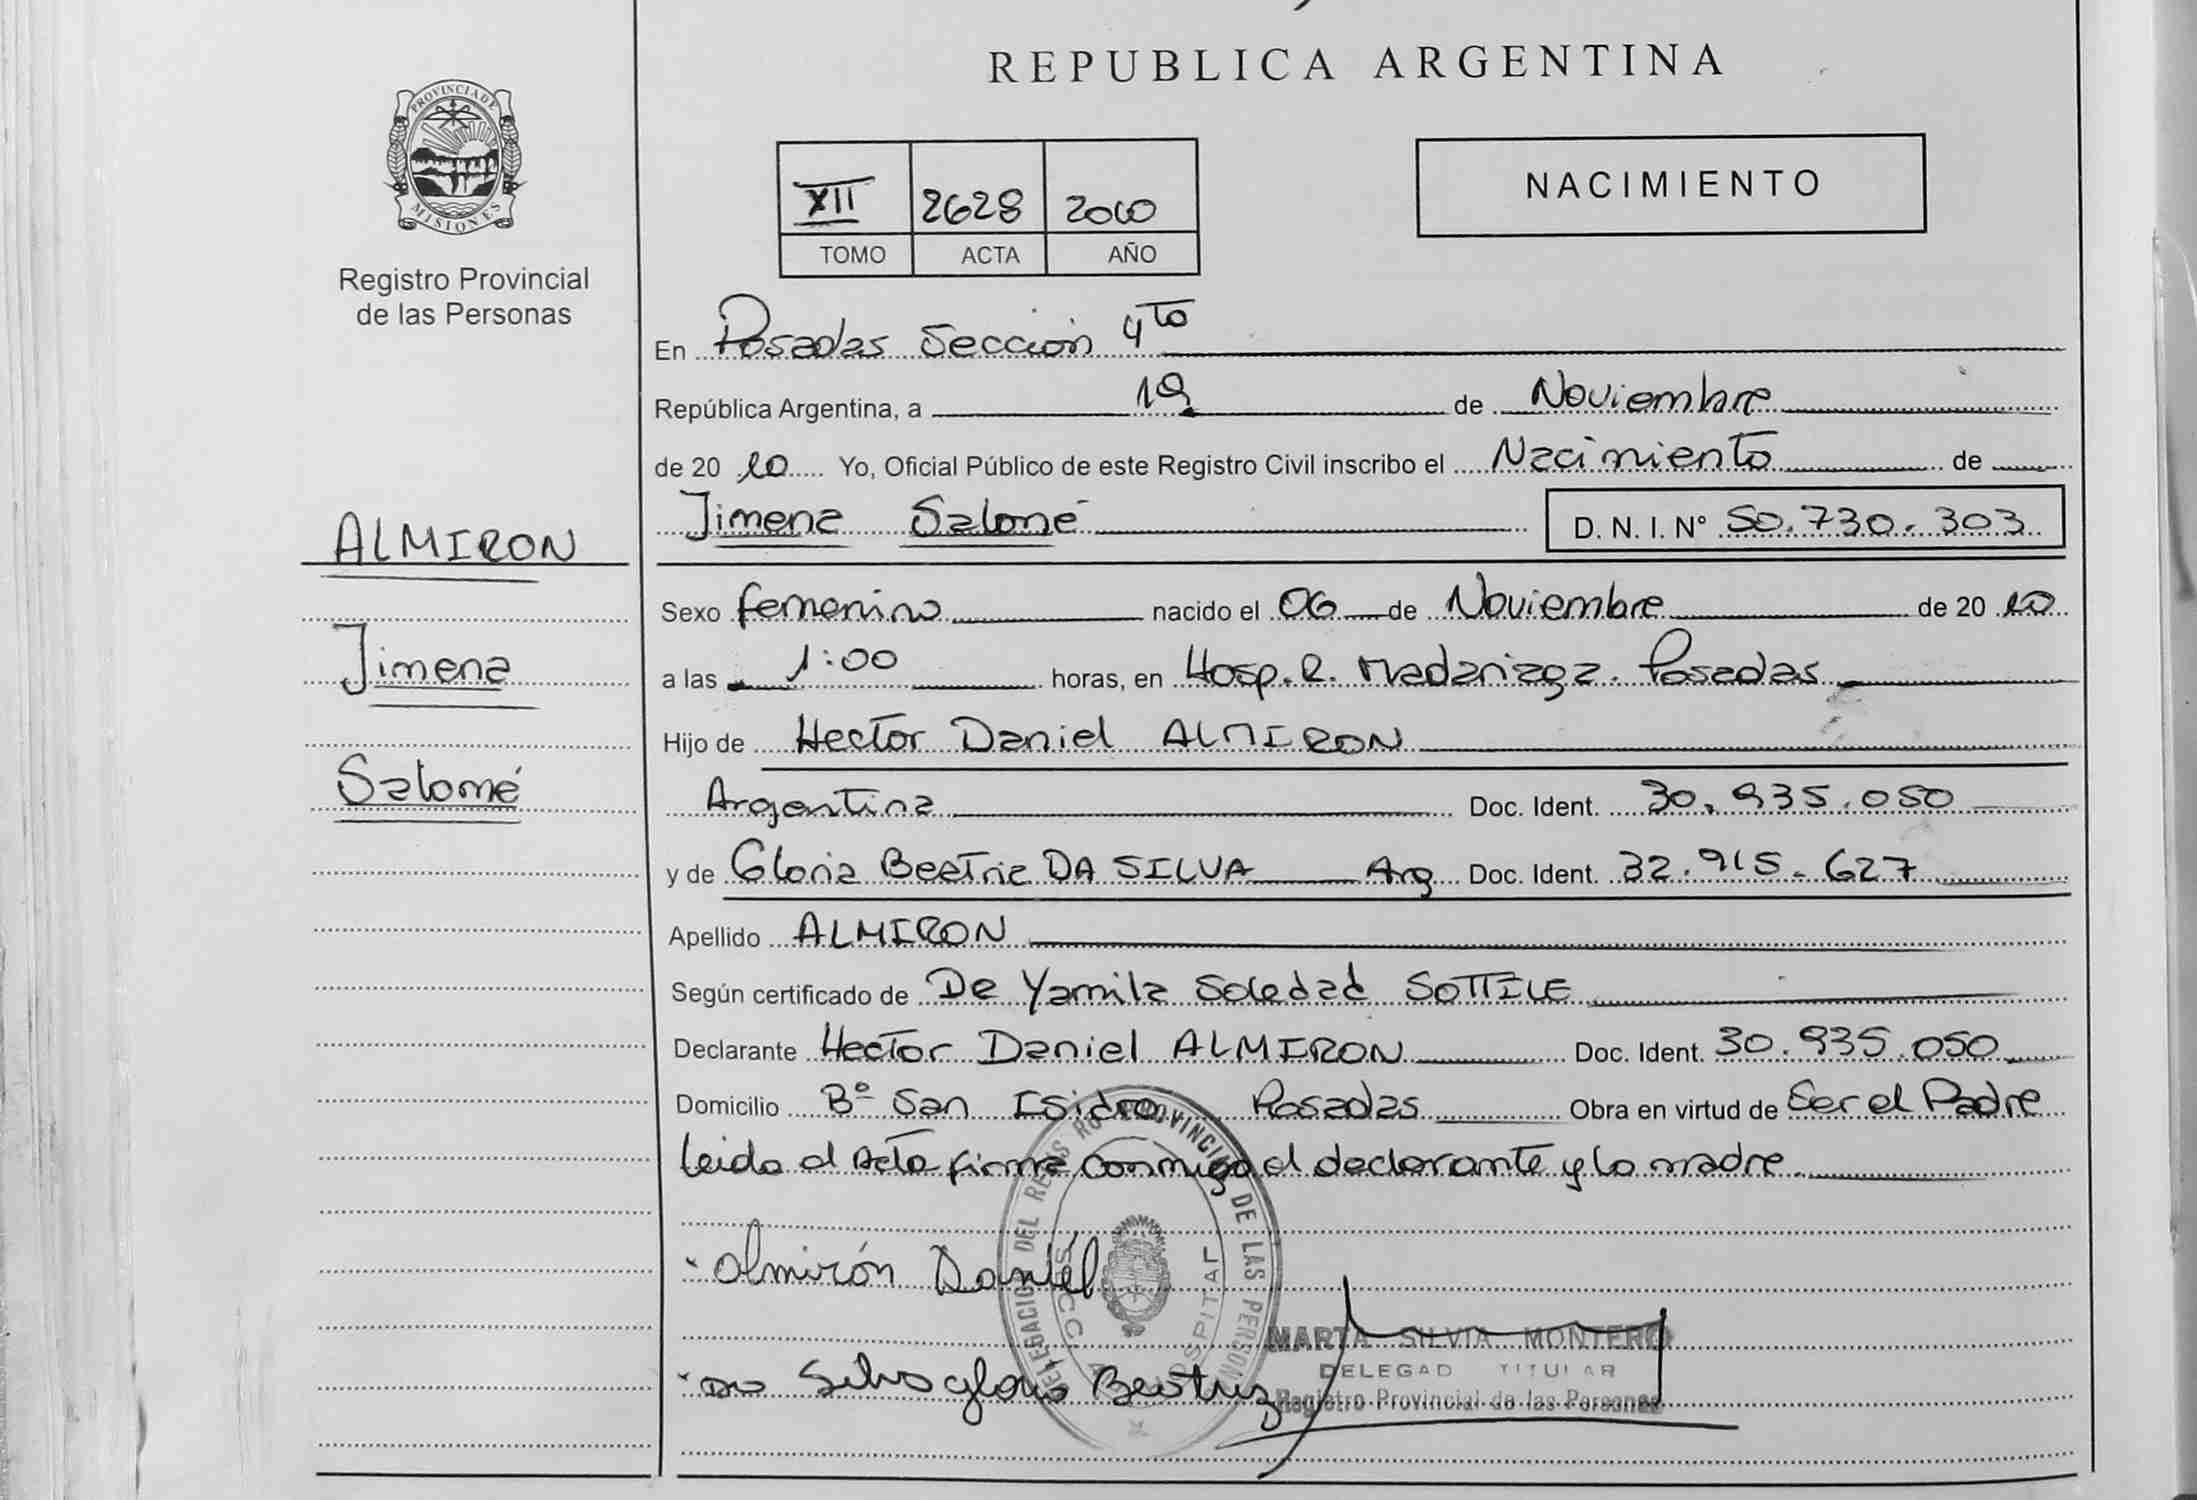 REPUBLICA ARGENTINA
PROVINCIA DE MISIONES
Registro Provincial
de las Personas
XII 2628 2010
TOMO ACTA AÑO
NACIMIENTO
En Posadas Sección 4to
República Argentina, a 19 de Noviembre
de 20 10 Yo, Oficial Público de este Registro Civil inscribo el Nacimiento de
Jimena Salomé D. N. I. N° 50.730.303
ALMIRON
Jimena
Salomé
Sexo femenino nacido el 06 de Noviembre de 20 10
a las 1:00 horas, en Hosp. R. Madariaga. Posadas
Hijo de Hector Daniel ALMIRON
Argentina Doc. Ident. 30.935.050
y de Gloria Beatriz DA SILVA Arg Doc. Ident. 32.915.627
Apellido ALMIRON
Según certificado de De Yamila Soledad SOTTILE
Declarante Hector Daniel ALMIRON Doc. Ident. 30.935.050
Domicilio Bº San Isidro Posadas Obra en virtud de Ser el Padre
Leida el Acta firma conmigo el declarante y la madre
Almirón Daniél
Da Silva gloria Beatriz
DELEGACIO DEL REGIS RO PROVINCIAL DE LAS PERSON
MARTA SILVIA MONTERO
DELEGAD TITULAR
Registro Provincial de las Personas